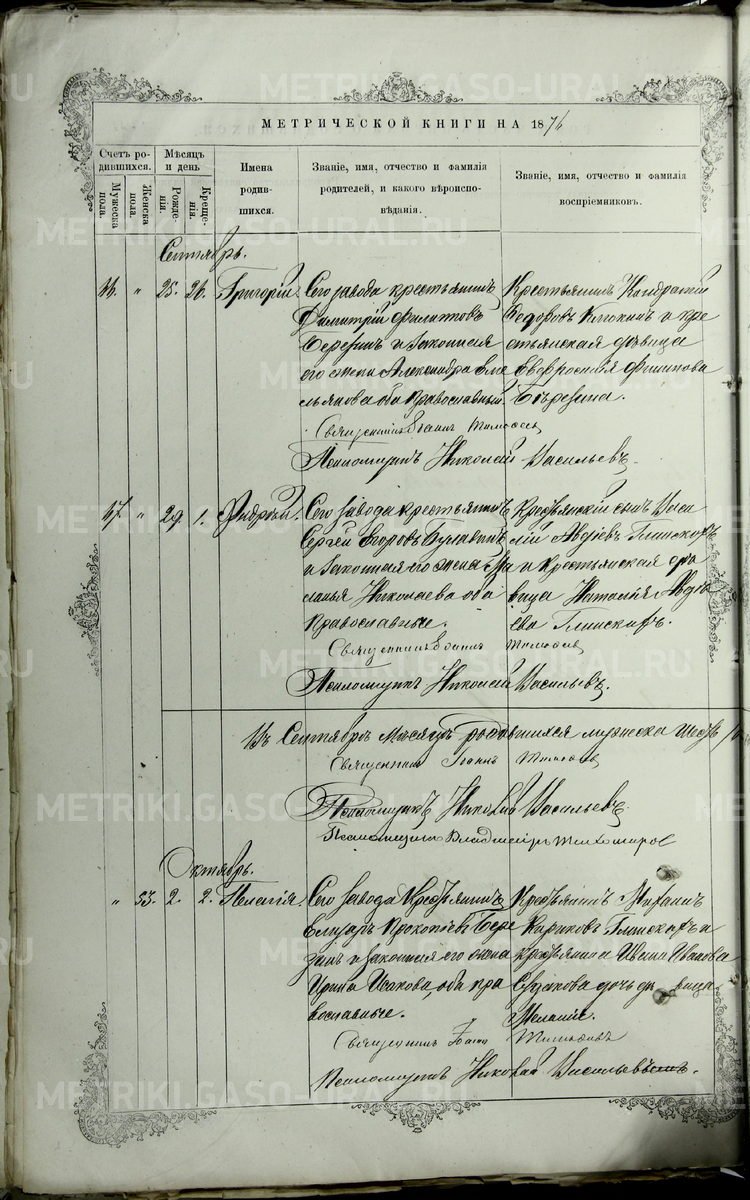 МЕТРИЧЕСКОЙ КНИГИ НА 1876
Счетъ родившихся.
Мужеска пола.
Женска пола.
Мѣсяцъ и день
Рожденія.
Крещенія.
Имена родившихся.
Званіе, имя, отчество и фамилія
родителей, и какого вѣроиспо-
вѣданія.
Званіе, имя, отчество и фамилія
воспріемниковъ.
Сентябрь.
66. " 25. 26. Григорій.
Сего завода крестьянинъ
Димитрій Филиповъ
Березинъ и законная
его жена Александра Еме
льянова оба православный
Крестьянинъ Кондратій
Федоровъ и кре
стьянская дѣвица
Евфросинія Филипова
Березина.
Священникъ Іоаннъ
Псаломщикъ Николай Васильевъ.
67. " 29. 1. Андрей.
Сего завода крестьянинъ
Сергей Егоровъ
и законная его жена Ма
ланья Николаева оба
православные.
Крестьянскій сынъ Васи
лій Авдіевъ Глинскихъ
и крестьянская дѣ
вица Наталія Авдѣ
ева Глинскихъ.
Священникъ Іоаннъ
Псаломщикъ Николай Васильевъ.
Въ Сентябрѣ мѣсяцѣ родившихся мужеска
Священникъ Іоаннъ
Псаломщикъ Николай Васильевъ
Псаломщикъ Владимиръ Тихомиров
Октябрь.
" 53. 2. 2. Пелагія.
Сего завода крестьянинъ
Елизаръ Прокопьевъ Бере
зинъ и законная его жена
Ирина Исакова, оба пра
вославные.
Крестьянинъ
Глинскихъ и
крестьянина Ивана Иванова
дочь дѣвица
Меланія.
Священникъ Іоаннъ
Псаломщикъ Николай Васильевъ.
METRIKI.GASO-URAL.RU